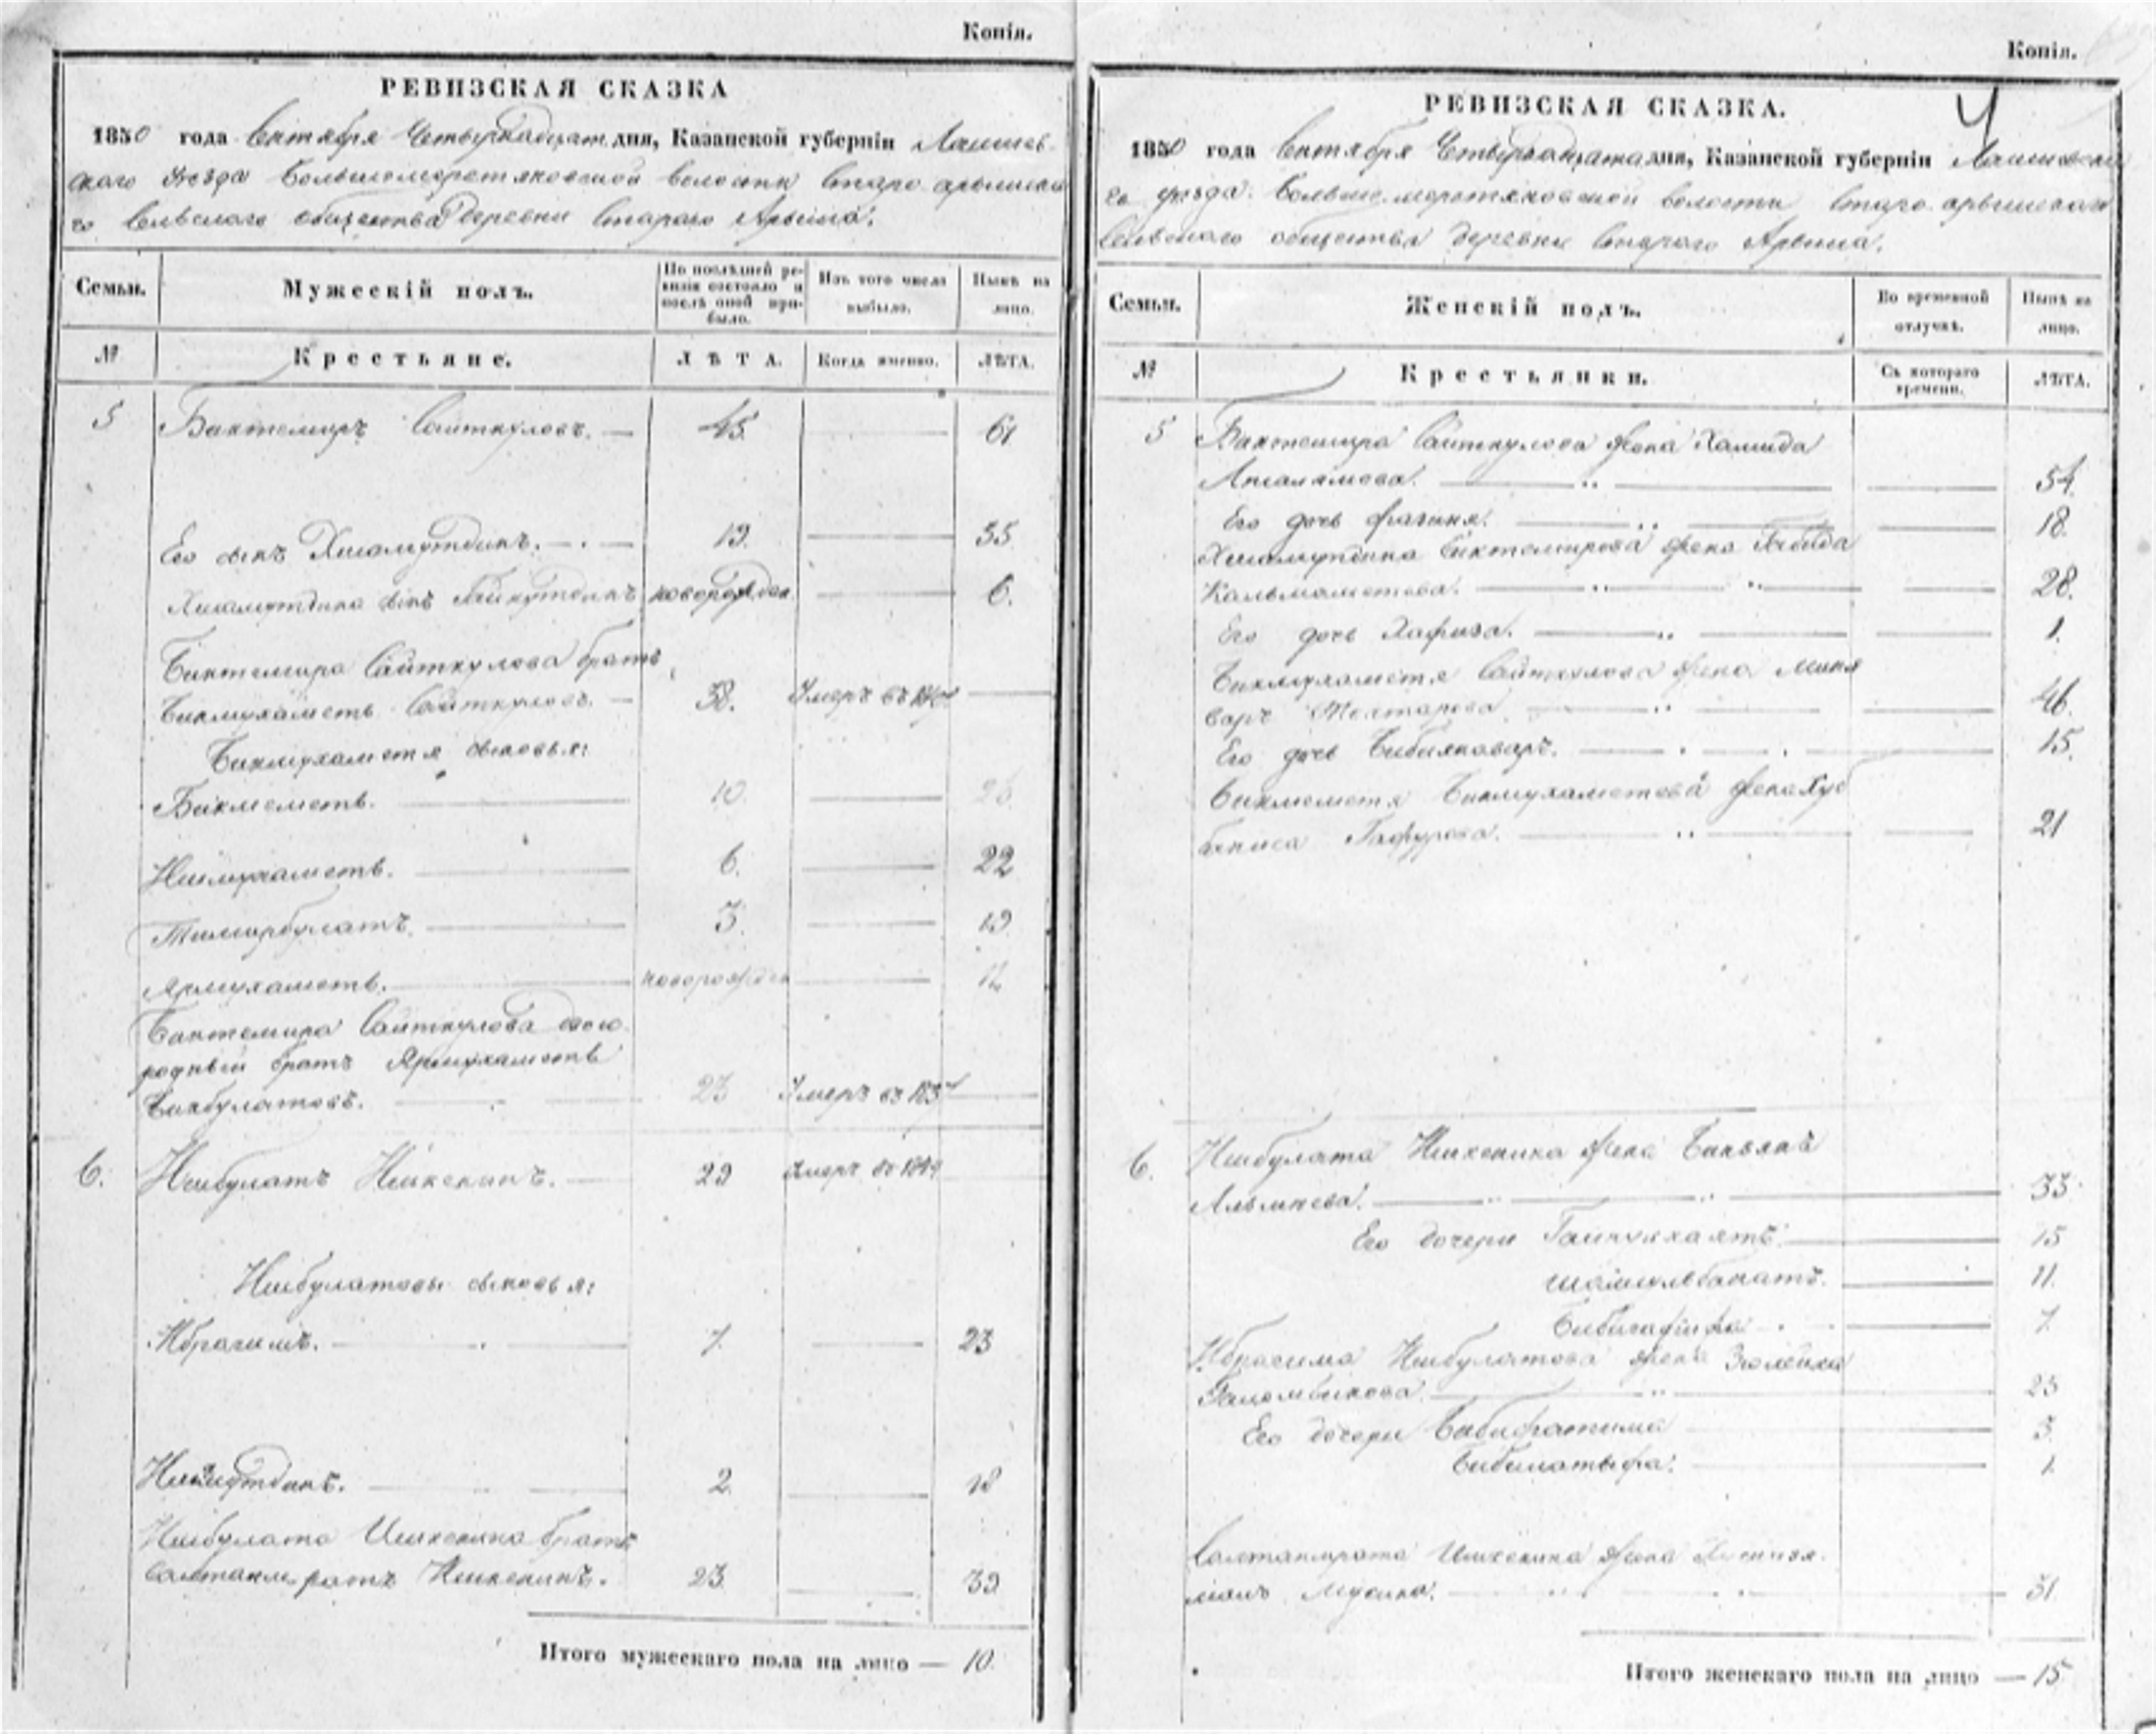 Копія.
РЕВИЗСКАЯ СКАЗКА
1850 года Сентября Четырнадцат дня, Казанской губерніи Лаишев-
скаго уезда Большемеретяковской волости Старо арышска
го Сельскаго общества деревни Стараго Арыша.
Семьи. Мужескій полъ. По послѣдней ревизіи состояло и послѣ оной прибыло. Изъ того числа выбыло. Нынѣ на лицо.
№ Крестьяне. ЛѢТА. Когда именно. ЛѢТА.
5 Бактемиръ Сайткуловъ. 45. 61
Его сынъ Хисамутдинъ. 19. 35
Хисамутдина сынъ новорожден 6.
Биктемира Сайткулова братъ
Бикмухаметь Сайткуловъ. 38. Умеръ въ
Бикмухаметя сыновья:
Бикмеметь. 10. 26
Ишмухаметь. 6. 22
Тимирбулатъ. 3. 19
Ярмухаметь. новорожден
Бактемира Сайткулова двою
родный братъ Ярмухаметь
Бикбулатовъ. 23 Умеръ въ
6. Ишбулатъ Ишкенинъ. 29 Умеръ въ 1849
Ишбулатовы сыновья:
Ибрагимъ. 7. 23
2. 18
Ишбулата Ишкенина братъ
Салтанмратъ Ишкенинъ. 23. 39
Итого мужескаго пола на лицо — 10.
Копія.
4
РЕВИЗСКАЯ СКАЗКА.
1850 года Сентября Четырнадцата дня, Казанской губерніи Лаишевска
го уезда Большемеретяковской волости Старо арышскаго
Сельскаго общества деревни Стараго Арыша.
Семьи. Женскій полъ. Во временной отлучкѣ. Нынѣ на лицо.
№ Крестьянки. Съ котораго времени. ЛѢТА.
5 Бактемира Сайткулова жена Хамида
54.
Его дочь Фазиня. 18.
Хисамутдина Биктемирова жена
Кальмаметева. 28.
Его дочь Хафиза. 1.
Бикмухаметя Сайткулова жена Минз
варъ Мохтарова. 46.
Его дочь 15.
Бикмеметя Бикмухаметева жена Хуб
баниса Гафурова. 21
6. Ишбулата Ишкенина жена
33
Его дочери 15
11.
7
Ибрагима Ишбулатова жена Зюлейха
23
Его дочери Бибифатима 3.
Бибилатыфа. 1.
Салтанмрата Ишкенина жена
Мусина. 31
Итого женскаго пола на лицо — 15.